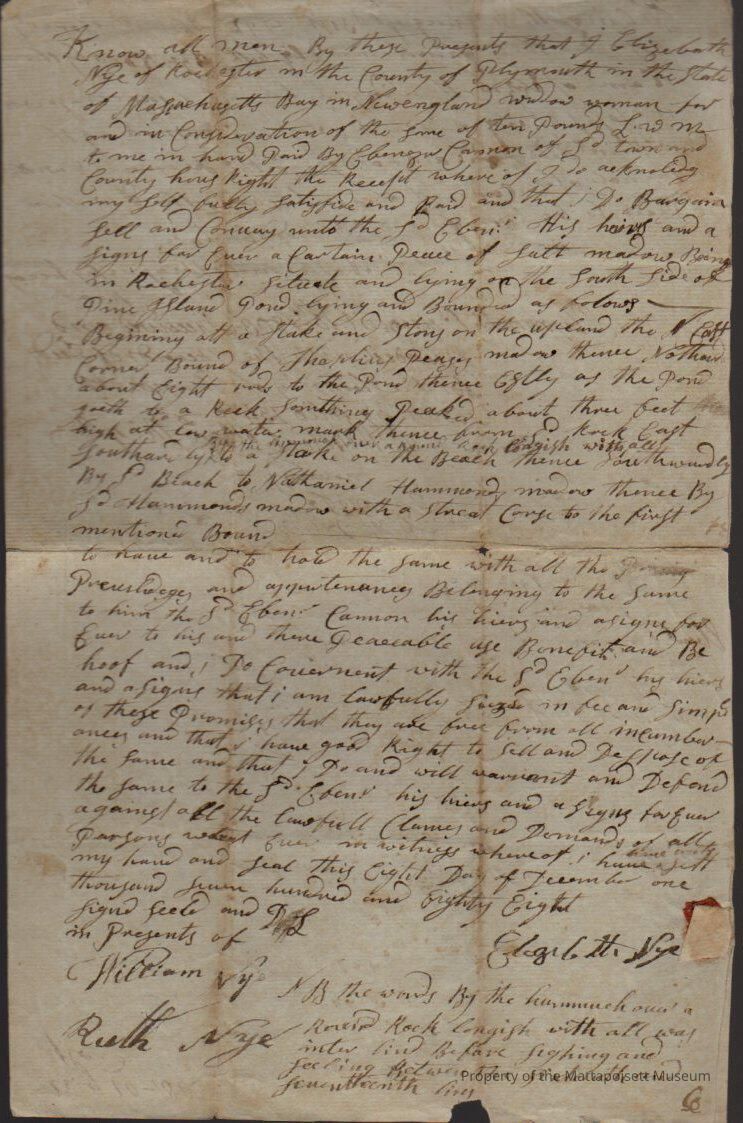 Know all men By these Presents that I Elizebath
Nye of Rochester in the County of Plymouth in the State
of Massachusetts Bay in Newengland widow woman for
and in Consideration of the some of ten Pounds L m
to me in hand Paid By Ebenezer Cannon of Sd town and
County hous Right the Receipt where of I do acknoledg
my Self fully Satisfide and Paid and that i Do Bargain
Sell and Convay unto the Sd Ebenr His heirs and a
signs for Ever a Cartain Peace of Salt madow Being
in Rochester Setuate and lying on the South Side of
Pine Island Pond lying and Bounded as folows
Begining att a Stake and Stons on the upland the N East
Corner Bound of madow thence Nothard
about Eight rods to the Pond thence Estly as the Pond
goeth to a Rock Somthing Peaked about three feet
high at low water mark thence from Sd Rock East
By the hummuck over a Round Rock longish with all
Southardly to a Stake on the Beach thence Southwardly
By Sd Beach to Nathaniel Hammonds madow thence By
Sd Hammonds madow with a Strat Corse to the first
mentioned Bound
to have and to hold the Same with all the
Preveledges and appurtenances Belonging to the Same
to him the Sd Ebenr Cannon his hiers and asigns for
Ever to his and there Peaceable use Benefit and Be
hoof and i Do Covernent with the Sd Ebenr his hiers
and asigns that i am lawfully in fee and Simpl
of these Promises that they are free from all incumber
ances and that i have good Right to Sell and Despose of
the Same and that i Do and will warrant and Defend
the Same to the Sd Ebenr his hiers and asigns forEver
against all the lawfull Clames and Demands of all
Parsons what Ever in witness whereof i have sett
my hand and Seal this Eight Day of December one
thousand Seven hundred and Eighty Eight
Signd Seeld and DL
in Presents of
Elezebath Nye
William Nye
Ruth Nye
NB the words By the hummuck over a
Round Rock longish with all was
inter lind Before Sighing and
Seeling Between the
Seventeenth lins
Property of the Mattapoisett Museum